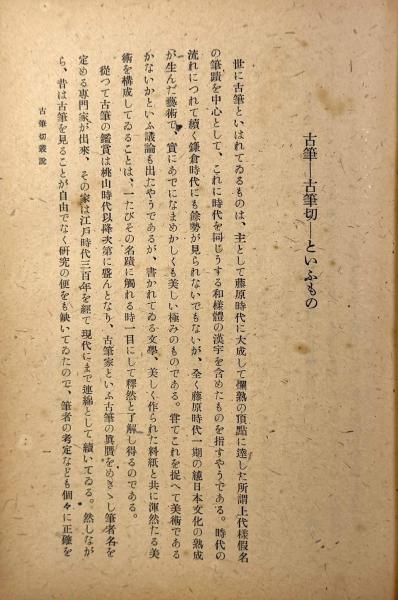 古筆―古筆切―といふもの
世に古筆といはれてゐるものは、主として藤原時代に大成して爛熟の頂點に達した所謂上代樣假名
の筆蹟を中心として、これに時代を同じうする和樣體の漢字を含めたものを指すやうである。時代の
流れにつれて續く鎌倉時代にも餘勢が見られないでもないが、全く藤原時代一期の純日本文化の熟成
が生んだ藝術で、實にあでになまめかしくも美しい極みのものである。嘗てこれを捉へて美術である
かないかといふ議論も出たやうであるが、書かれてゐる文學、美しく作られた料紙と共に渾然たる美
術を構成してゐることは、一たびその名蹟に觸れる時一目にして釋然と了解し得るのである。
從つて古筆の鑑賞は桃山時代以降次第に盛んとなり、古筆家といふ古筆の眞贋をめきゝし筆者名を
定める專門家が出來、その家は江戸時代三百年を經て現代にまで連綿として續いてゐる。然しなが
ら、昔は古筆を見ることが自由でなく研究の便をも缺いてゐたので、筆者の考定なども個々に正確を
古筆切叢說
一